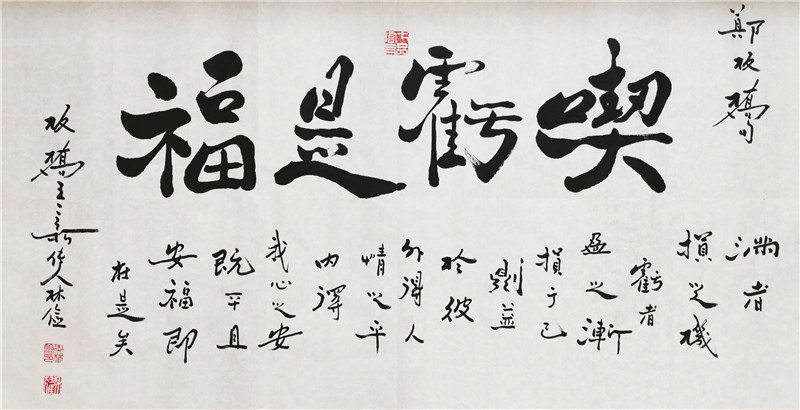 鄭板橋
喫虧是福
滿者
損之機
虧者
盈之漸
損于己
則益
於彼
外得人
情之平
內得
我心之安
既平且
安福即
在是矣
板橋传人林